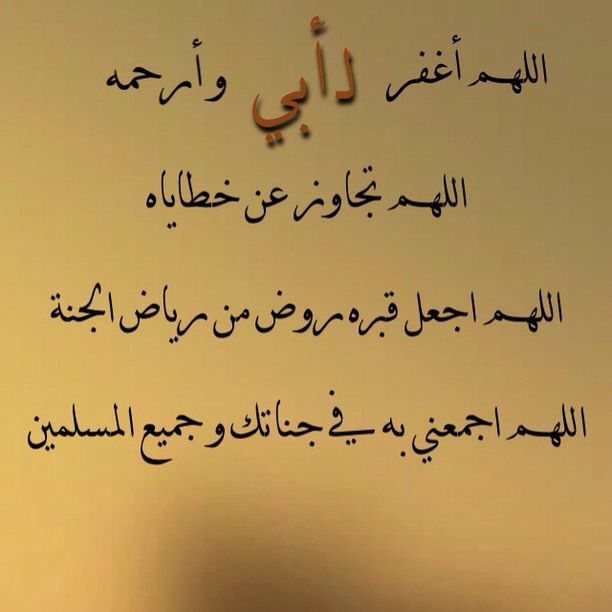 اللهم أغفر لأبي وأرحمه
اللهم تجاوز عن خطاياه
اللهم اجعل قبره روض من رياض الجنة
اللهم اجمعني به في جناتك وجميع المسلمين